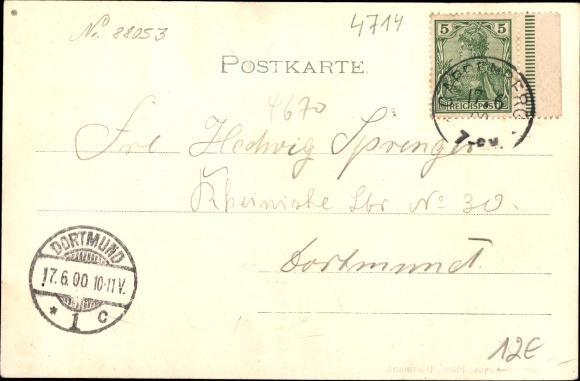 No. 88053
4714
5 5
REICHSPOST
POSTKARTE.
4670
7-8V.
Frl Hedwig Sprenger
Rheinische Str No 30.
Dortmund.
DORTMUND
17.6.00 10-11V.
* 1 c
12E